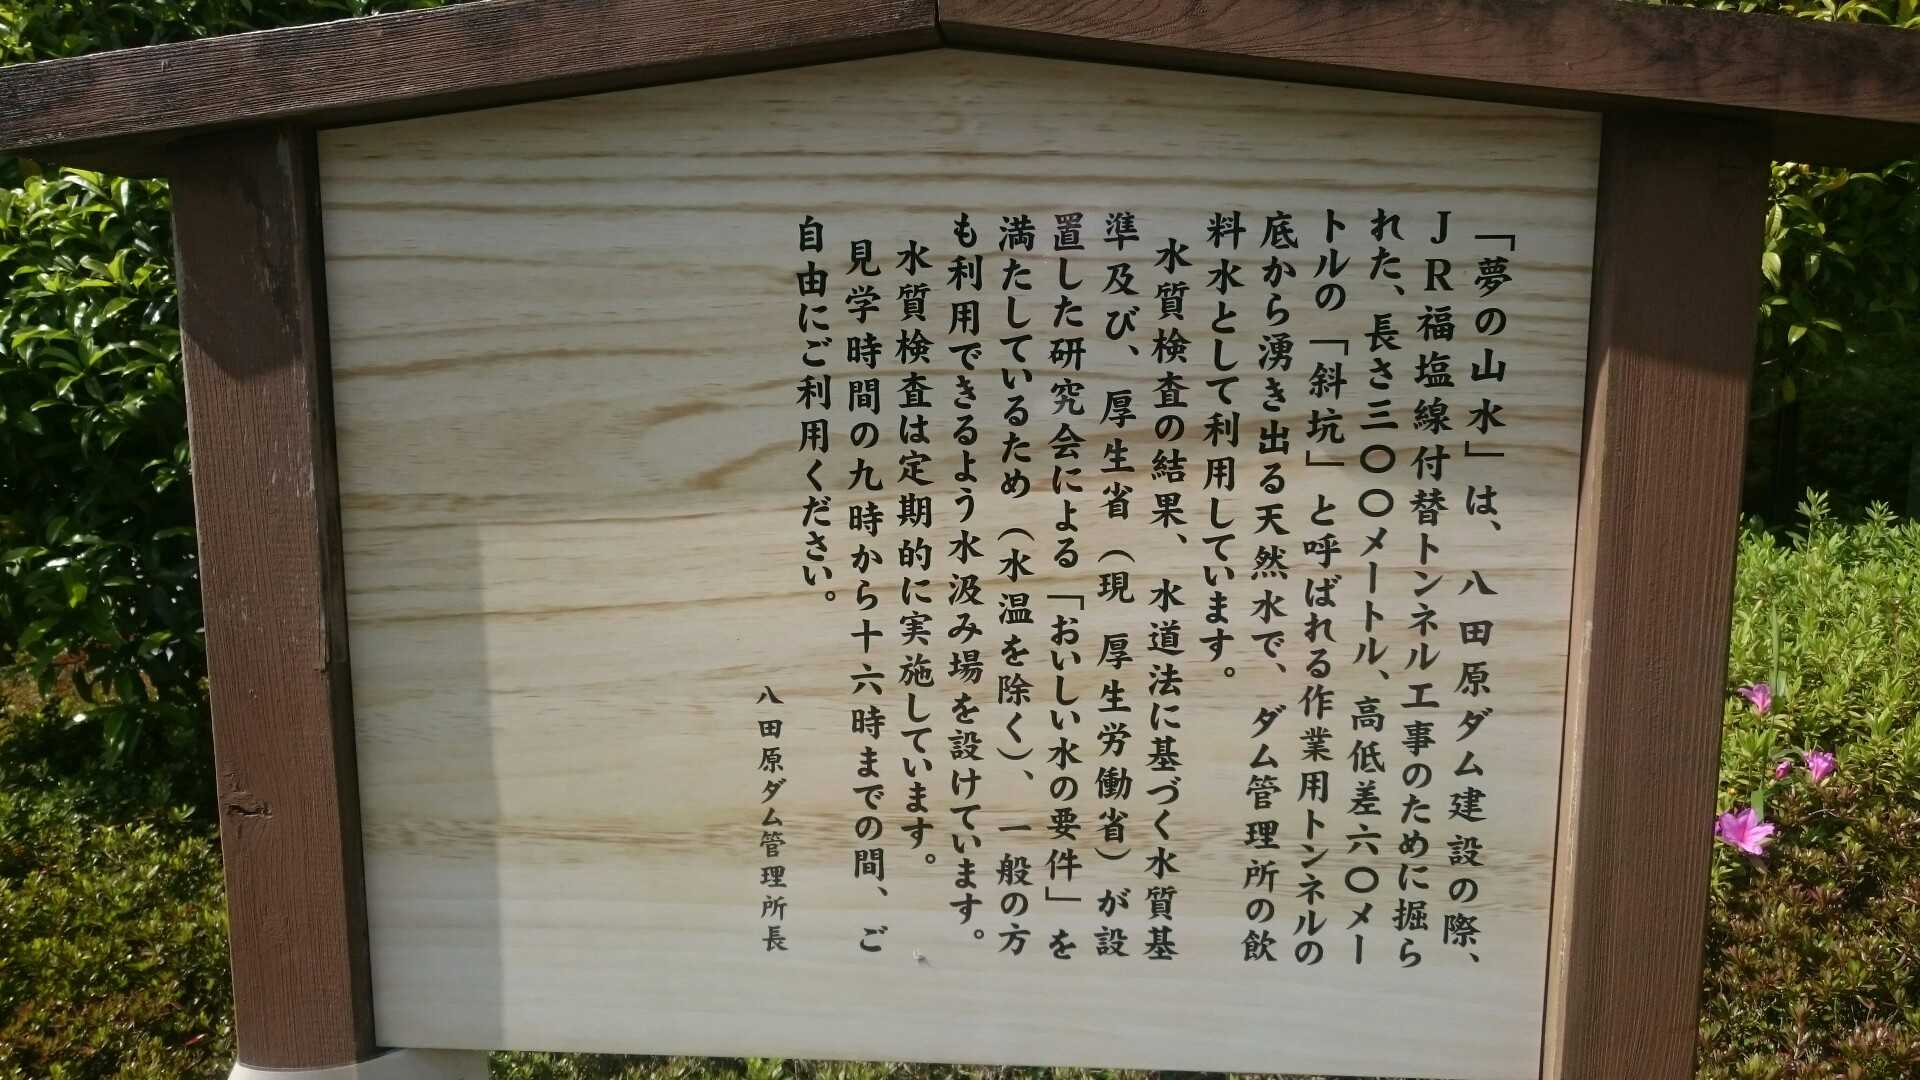 「夢の山水」は、八田原ダム建設の際、
ＪＲ福塩線付替トンネル工事のために掘ら
れた、長さ三〇〇メートル、高低差六〇メー
トルの「斜坑」と呼ばれる作業用トンネルの
底から湧き出る天然水で、ダム管理所の飲
料水として利用しています。
水質検査の結果、水道法に基づく水質基
準及び、厚生省（現　厚生労働省）が設
置した研究会による「おいしい水の要件」を
満たしているため（水温を除く）、一般の方
も利用できるよう水汲み場を設けています。
水質検査は定期的に実施しています。
見学時間の九時から十六時までの間、ご
自由にご利用ください。
八田原ダム管理所長